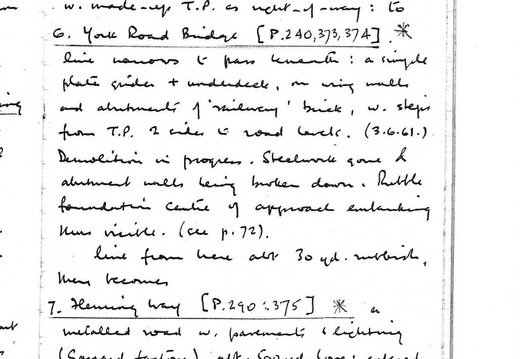 w. made-up T.P. as right-of-way: to
6. York Road Bridge [P.240,373,374]. *
line narrows to pass beneath: a simple
plate girder + underdeck, on wing walls
and abutments of 'railway' brick, w. steps
from T.P. 2 sides to road levels. (3.6.61.)
Demolition in progress. Steelwork gone &
abutment walls being broken down. Rubble
foundation centre of approach embanking
thus visible. (see p.72).
line from here abt 30 yd. rubbish,
then becomes
7. Fleming Way [P.290:.375] * a
metalled road w. pavements & lighting